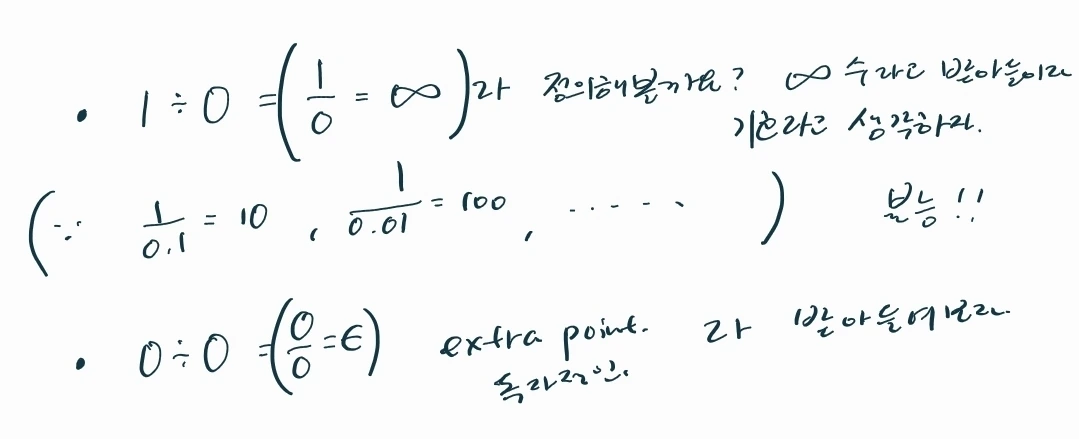 • 1 ÷ 0 = (1/0 = ∞)라 정의해볼까요? ∞ 수라고 받아들이고
기호라고 생각하자.
(∵ 1/0.1 = 10 , 1/0.01 = 100 , ‥‥‥ ) 불능!!
• 0 ÷ 0 = (0/0 = ϵ) extra point. 라 받아들여보자.
독자적인.